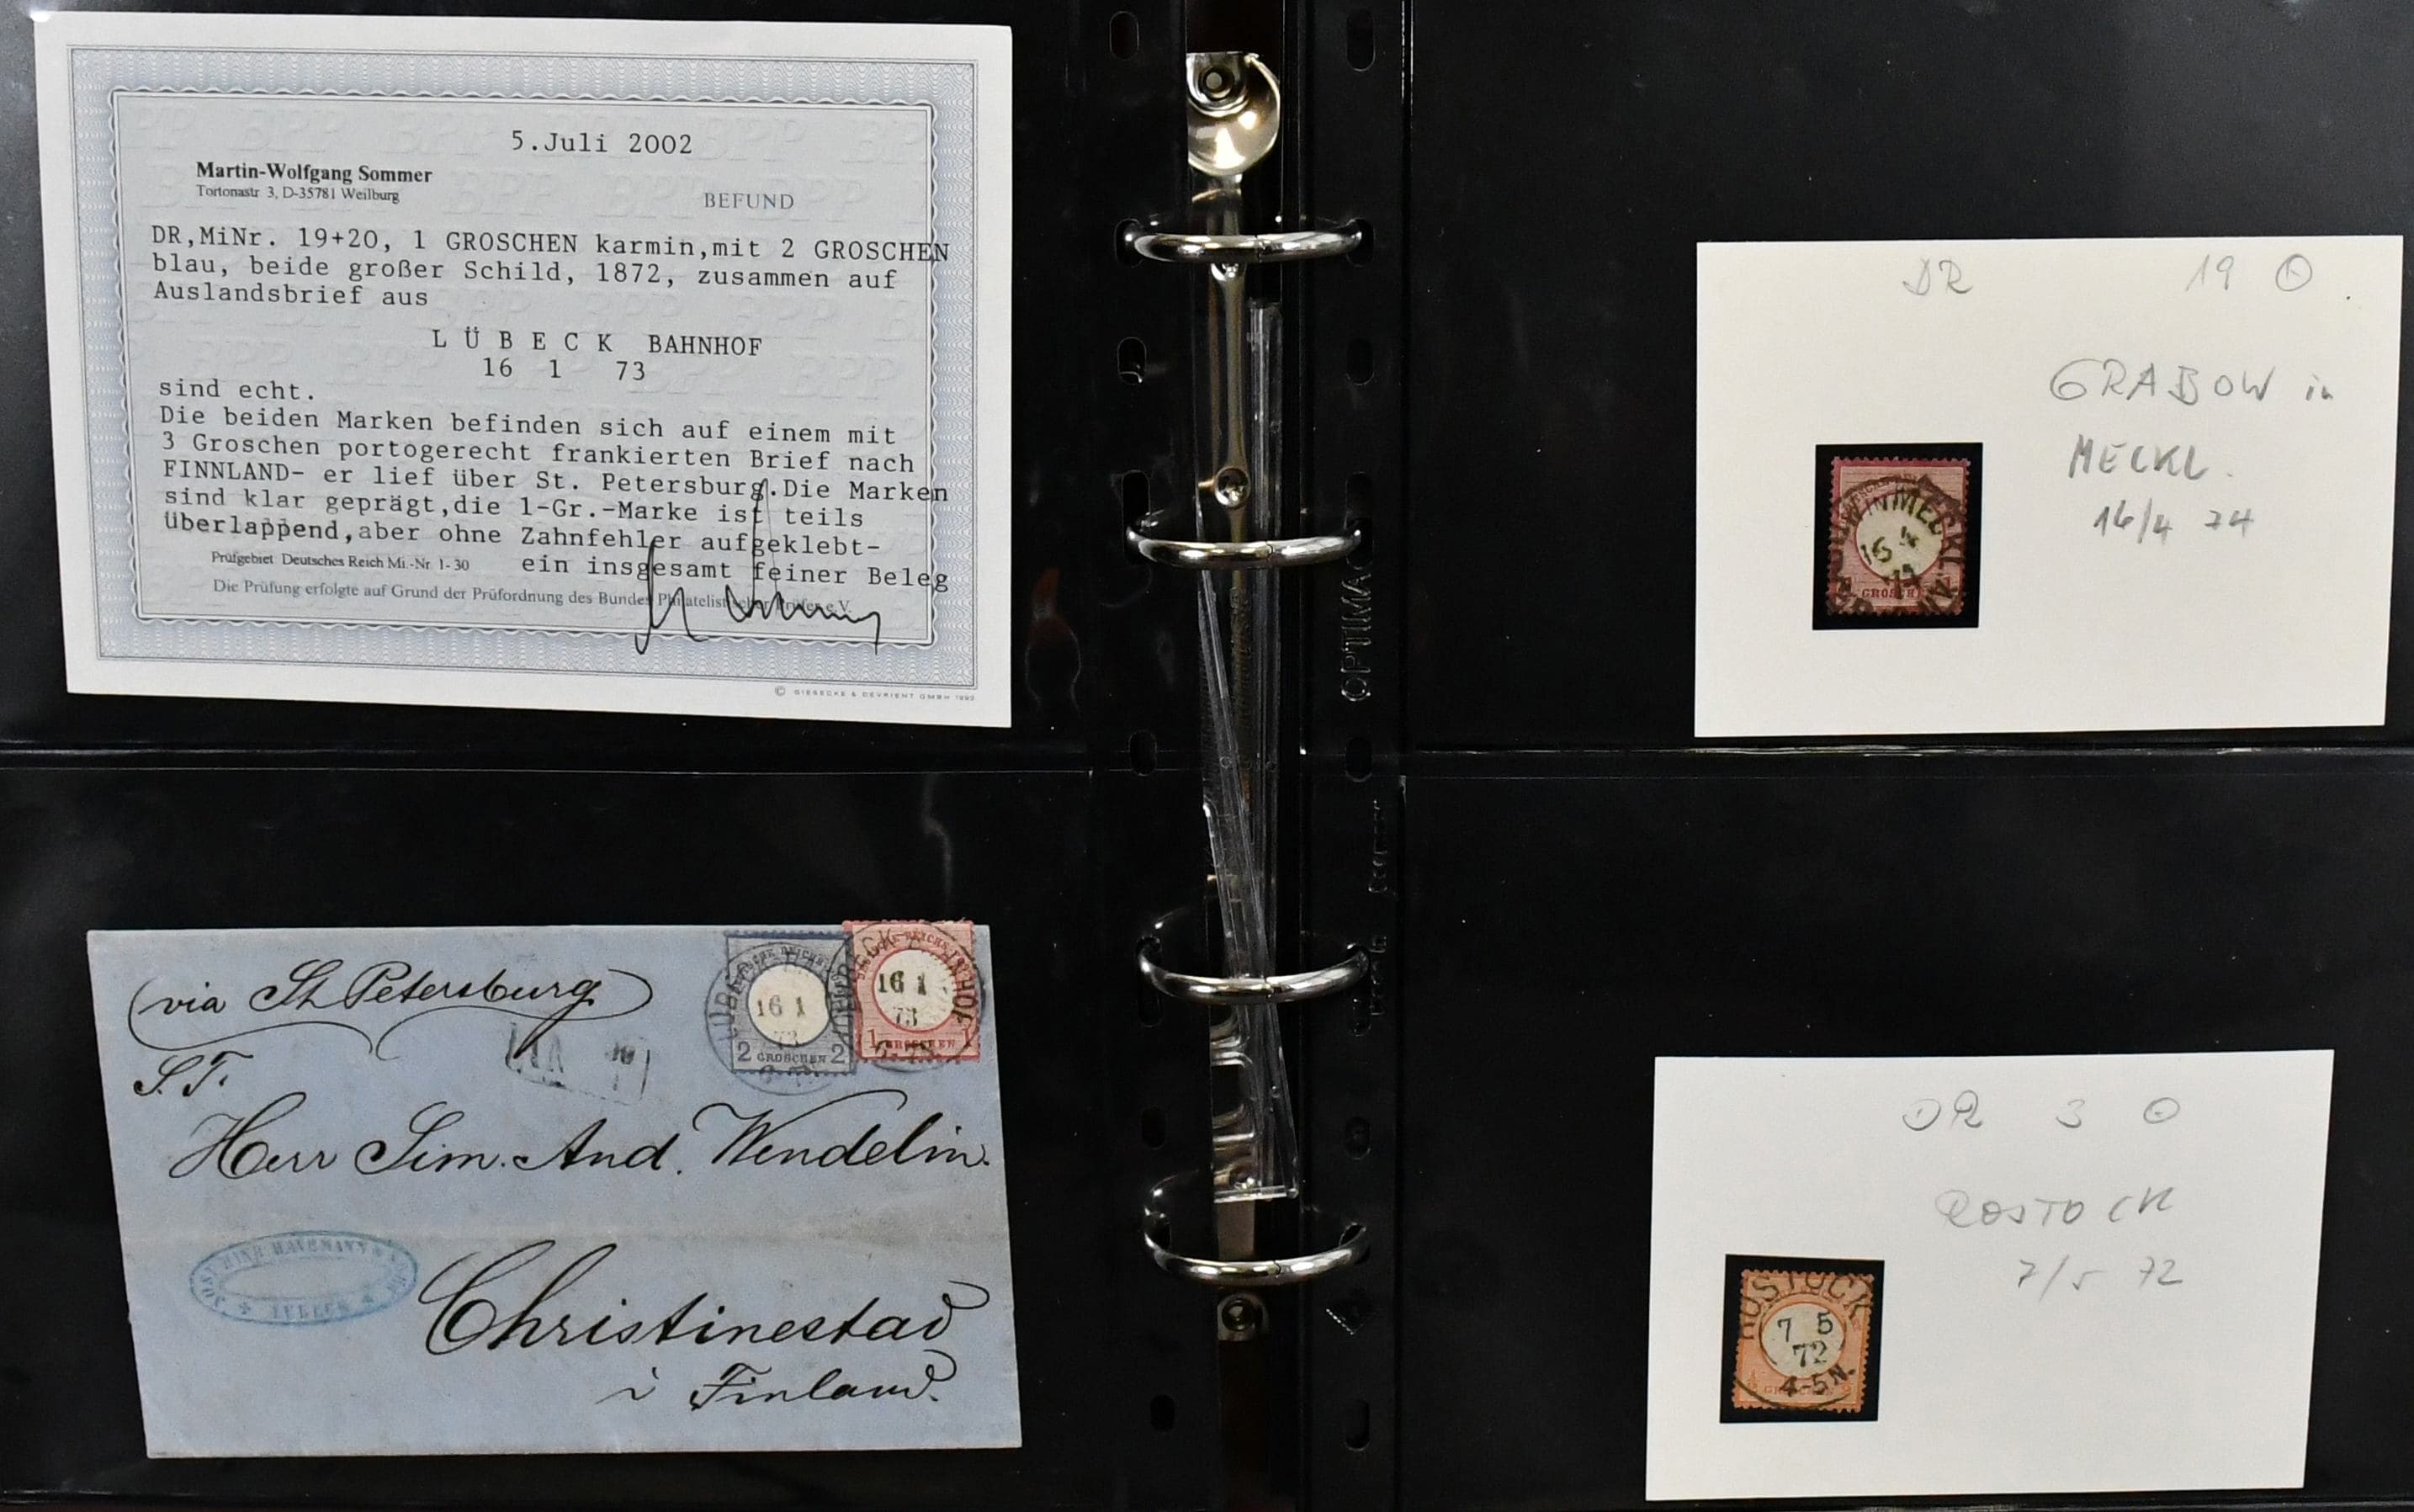 5.Juli 2002
Martin-Wolfgang Sommer
Tortonastr 3, D-35781 Weilburg
BEFUND
DR,MiNr. 19+20, 1 GROSCHEN karmin,mit 2 GROSCHEN
blau, beide großer Schild, 1872, zusammen auf
Auslandsbrief aus
L Ü B E C K BAHNHOF
16 1 73
sind echt.
Die beiden Marken befinden sich auf einem mit
3 Groschen portogerecht frankierten Brief nach
FINNLAND- er lief über St. Petersburg.Die Marken
sind klar geprägt,die 1-Gr.-Marke ist teils
überlappend,aber ohne Zahnfehler aufgeklebt-
Prüfgebiet Deutsches Reich Mi.-Nr. 1-30
ein insgesamt feiner Beleg
Die Prüfung erfolgte auf Grund der Prüfordnung des Bundes Philatelistischer Prüfer e.V.
© GIESECKE & DEVRIENT GMBH 1990
via St Petersburg
S. T.
Herr Sim. And. Wendelin.
Christinestad
i Finland.
16 1
73
2 GROSCHEN 2
16 1
73
1 GROSCHEN 1
OPTIMA
DR 19
GRABOW in
MECKL.
16/4 74
IN MECKL.
16 4
GROSCHEN
DR 3
ROSTOCK
7/5 72
ROSTOCK
7 5
72
4-5N.